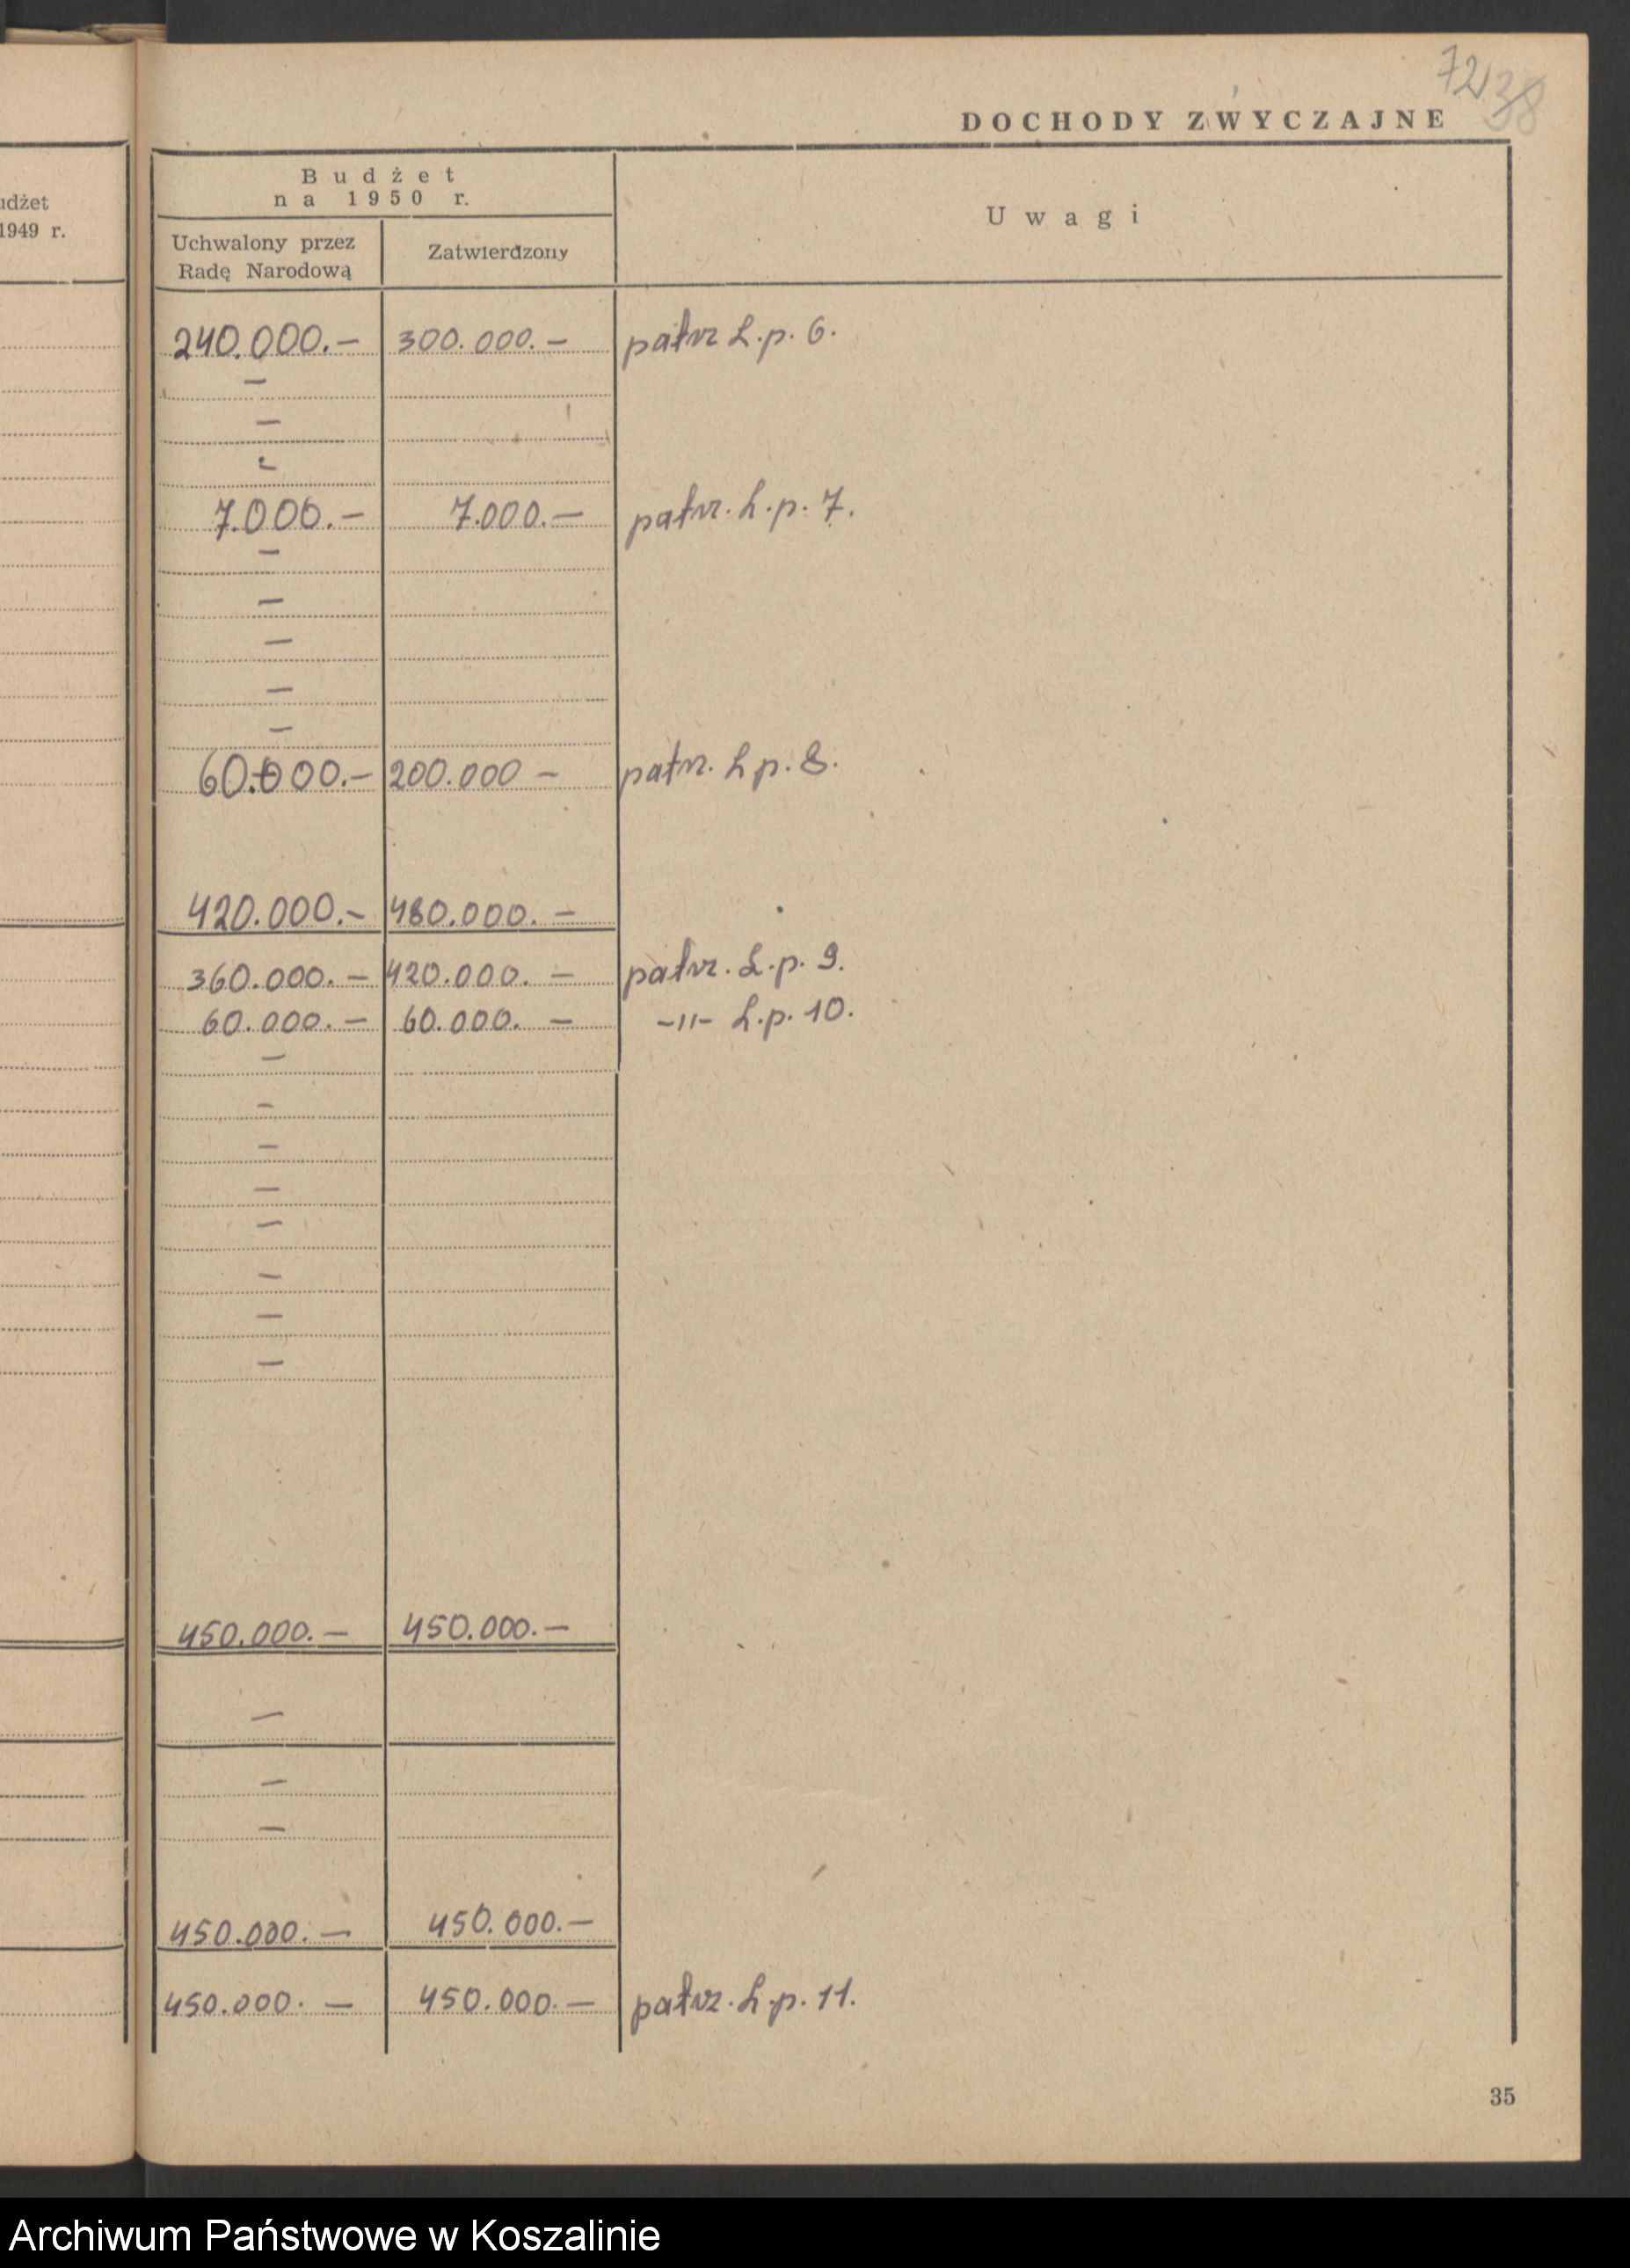 72 38
DOCHODY ZWYCZAJNE
udżet
1949 r.
Budżet
na 1950 r.
Uwagi
Uchwalony przez
Radę Narodową
Zatwierdzony
240.000.— 300.000.— patrz L.p. 6.
—
—
—
7.000.— 7.000.— patrz. L.p. 7.
—
—
—
—
—
60.000.— 200.000 — patrz. L p. 8.
420.000.— 480.000. —
360.000. — 420.000. — patrz. L.p. 9.
60.000. — 60.000. — -"- L.p. 10.
—
—
—
—
—
—
—
—
450.000. — 450.000.—
—
—
—
450.000. — 450.000.—
450.000. — 450.000.— patrz. L.p. 11.
35
Archiwum Państwowe w Koszalinie